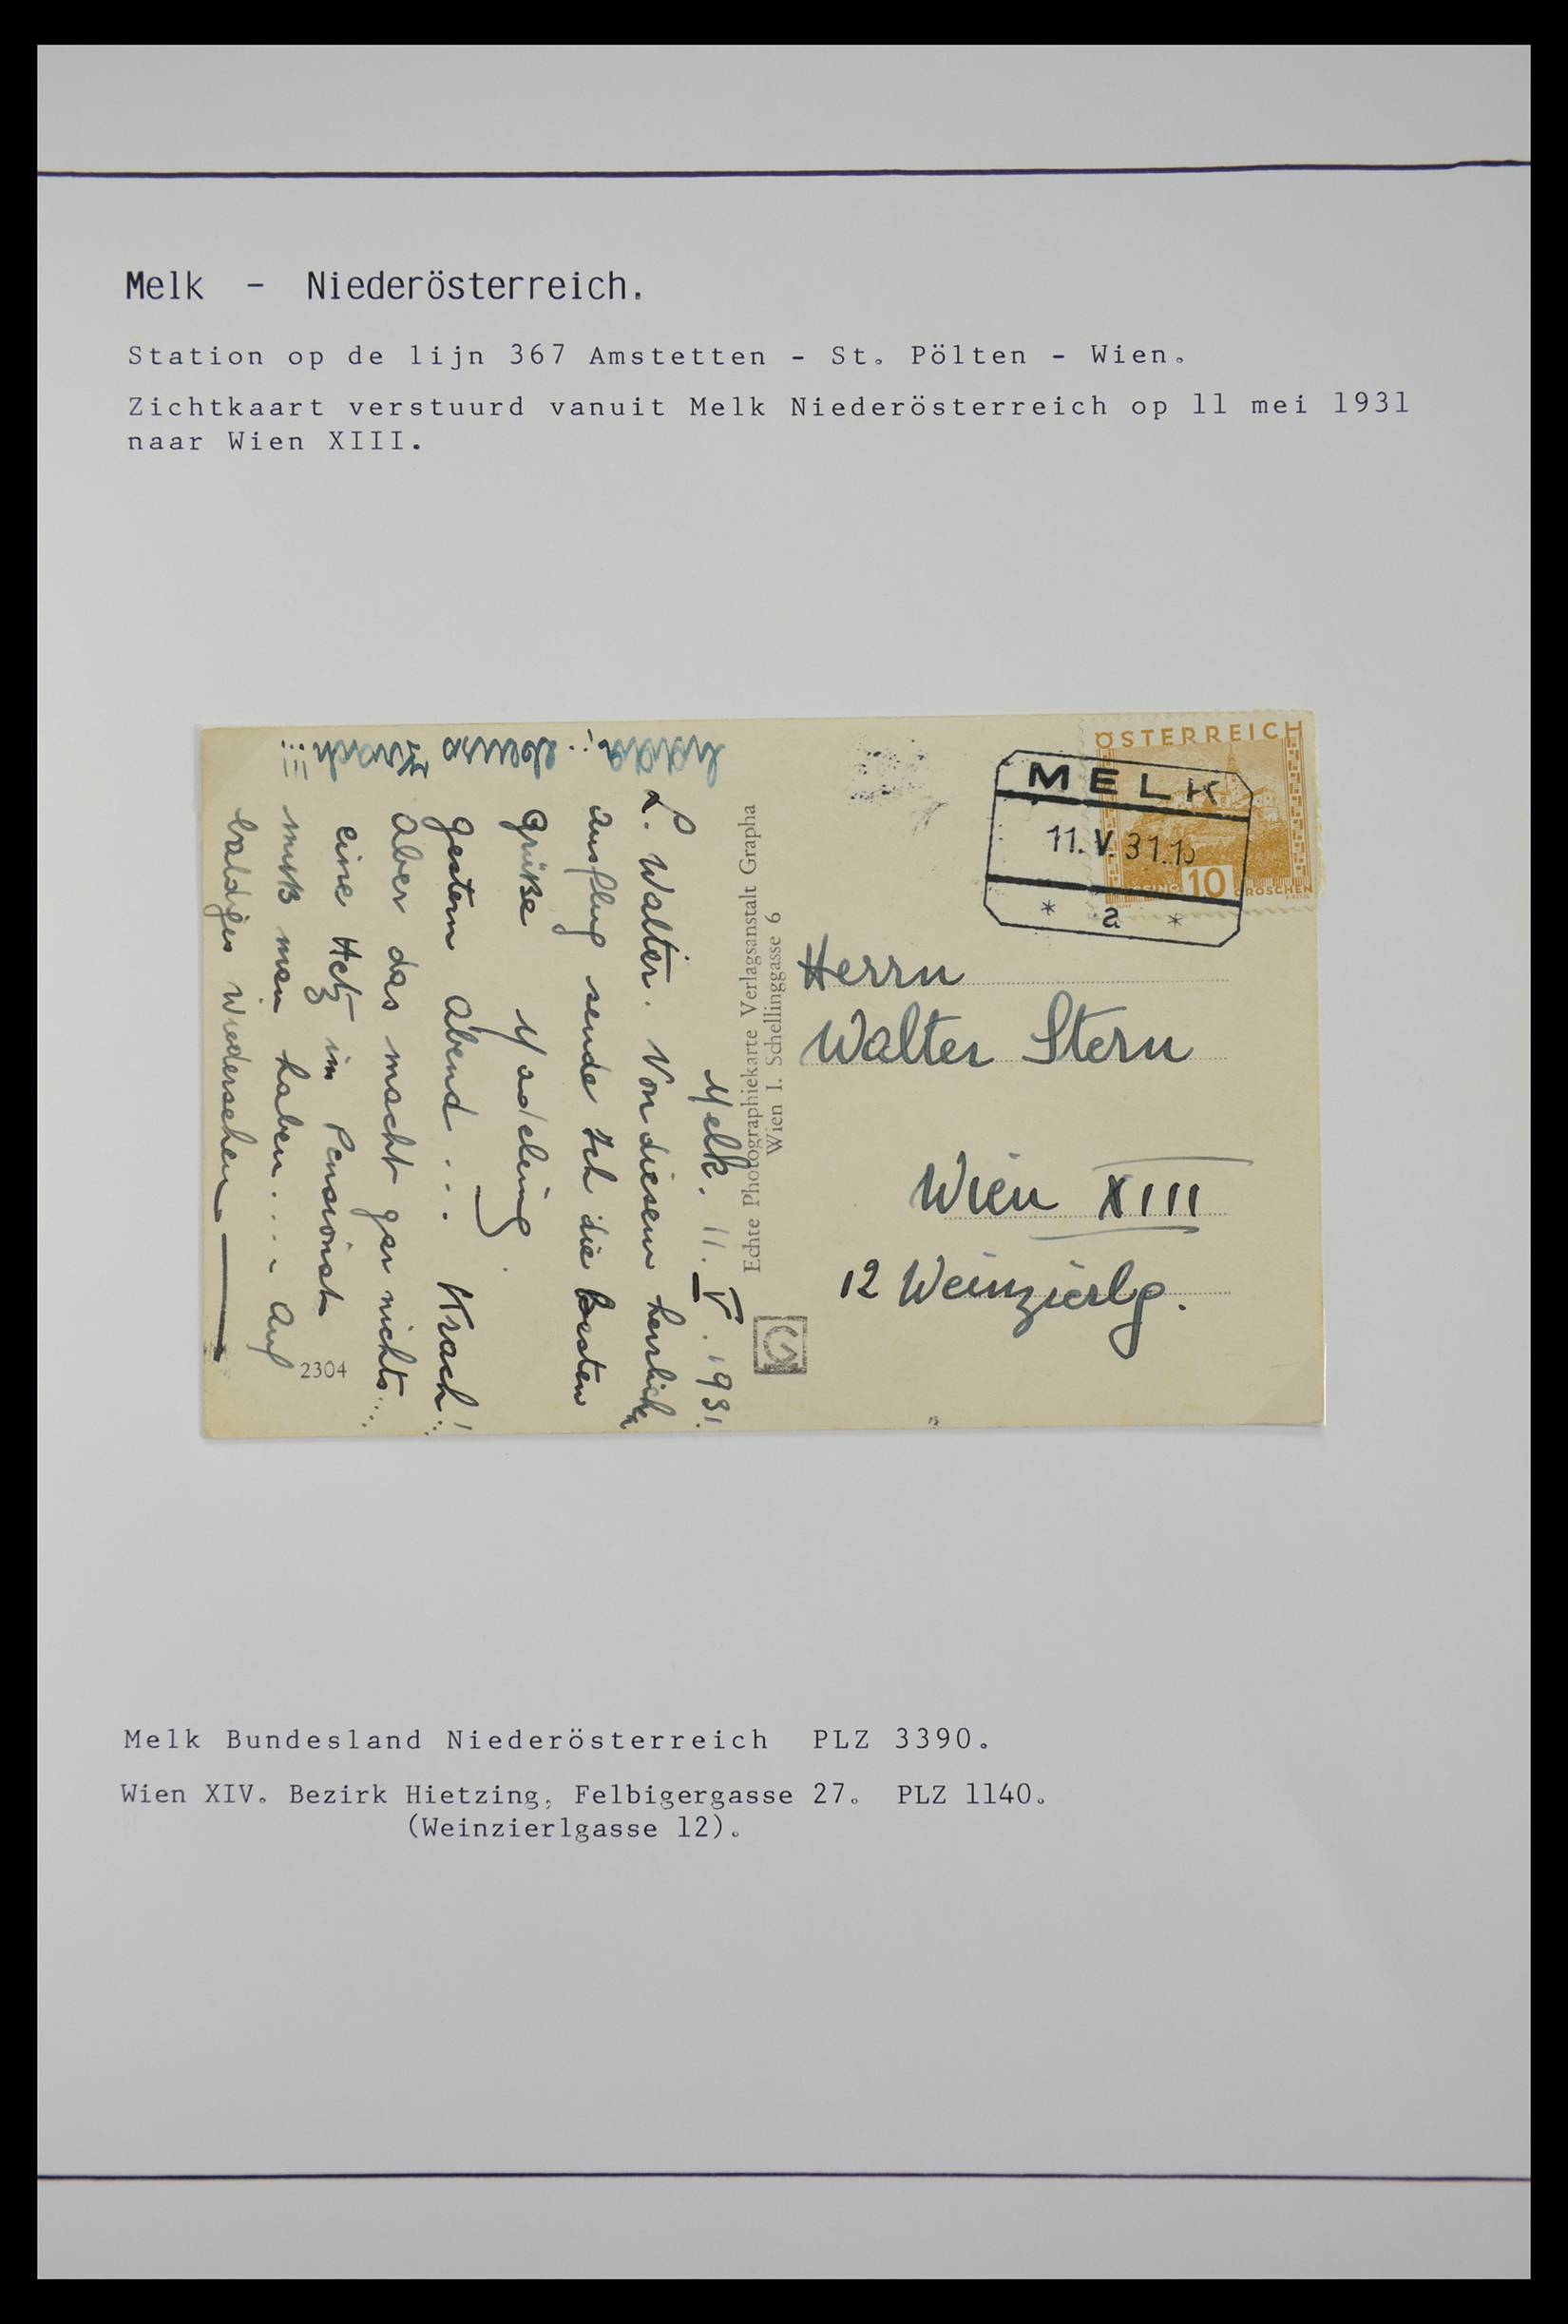 Melk - Niederösterreich.
Station op de lijn 367 Amstetten - St. Pölten - Wien.
Zichtkaart verstuurd vanuit Melk Niederösterreich op 11 mei 1931
naar Wien XIII.
ÖSTERREICH
10
GROSCHEN
MELK
11.V.31.
* a *
Herrn
Walter Stern
Wien XIII
12 Weinzierlg.
Echte Photographiekarte Verlagsanstalt Grapha
Wien I. Schellinggasse 6
G
Melk. 11. V. 1931.
L. Walter. Von diesem herrlichen
Ausflug sende ich die Besten
Grüße
gestern Abend ... Krach!
Aber das macht gar nichts...
eine Hetz im Pensionat
muß man haben .... Auf
baldiges Wiedersehen
2304
Krach !!!
Melk Bundesland Niederösterreich PLZ 3390.
Wien XIV. Bezirk Hietzing, Felbigergasse 27. PLZ 1140.
(Weinzierlgasse 12).